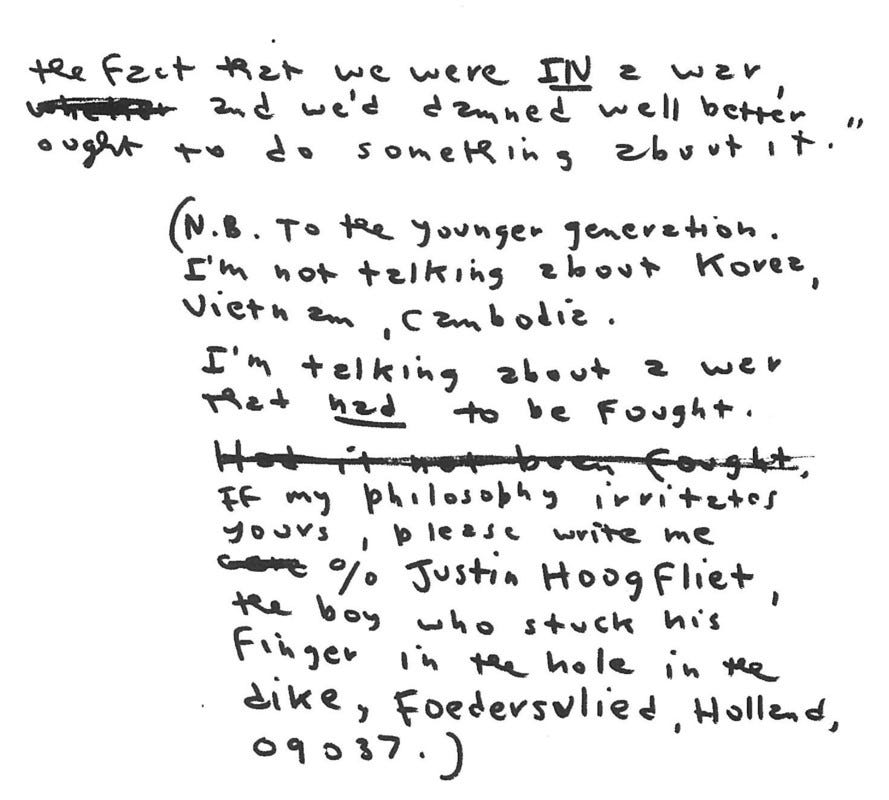 the fact that we were IN a war,
whether and we'd damned well better
ought to do something about it."
(N.B. To the younger generation.
I'm not talking about Korea,
Vietnam, Cambodia.
I'm talking about a war
that had to be fought.
Had it not been fought,
If my philosophy irritates
yours, please write me
% Justin Hoogfliet,
the boy who stuck his
finger in the hole in the
dike, Foedersvlied, Holland,
09037.)